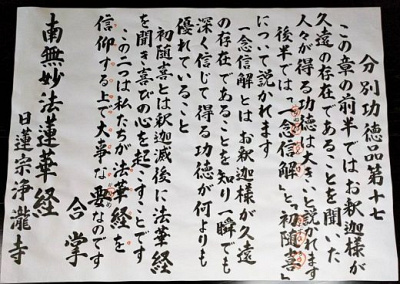 分別功徳品第十七
この章の前半ではお釈迦様が
久遠の存在であることを聞いた
人々が得る功徳は大きいと説かれます
後半では「一念信解」と「初随喜」
について説かれます
一念信解とはお釈迦様が久遠
の存在であることを知り一瞬でも
深く信じて得る功徳が何よりも
優れていること
初随喜とは釈迦滅後に法華経
を聞き喜びの心を起こすことです
この二つは私たちが法華経を
信仰する上で大事な要なのです
合掌
南無妙法蓮華経
日蓮宗浄瀧寺